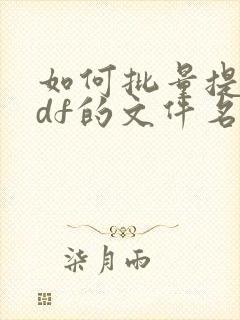 如何批量提
df的文件名
柒月雨